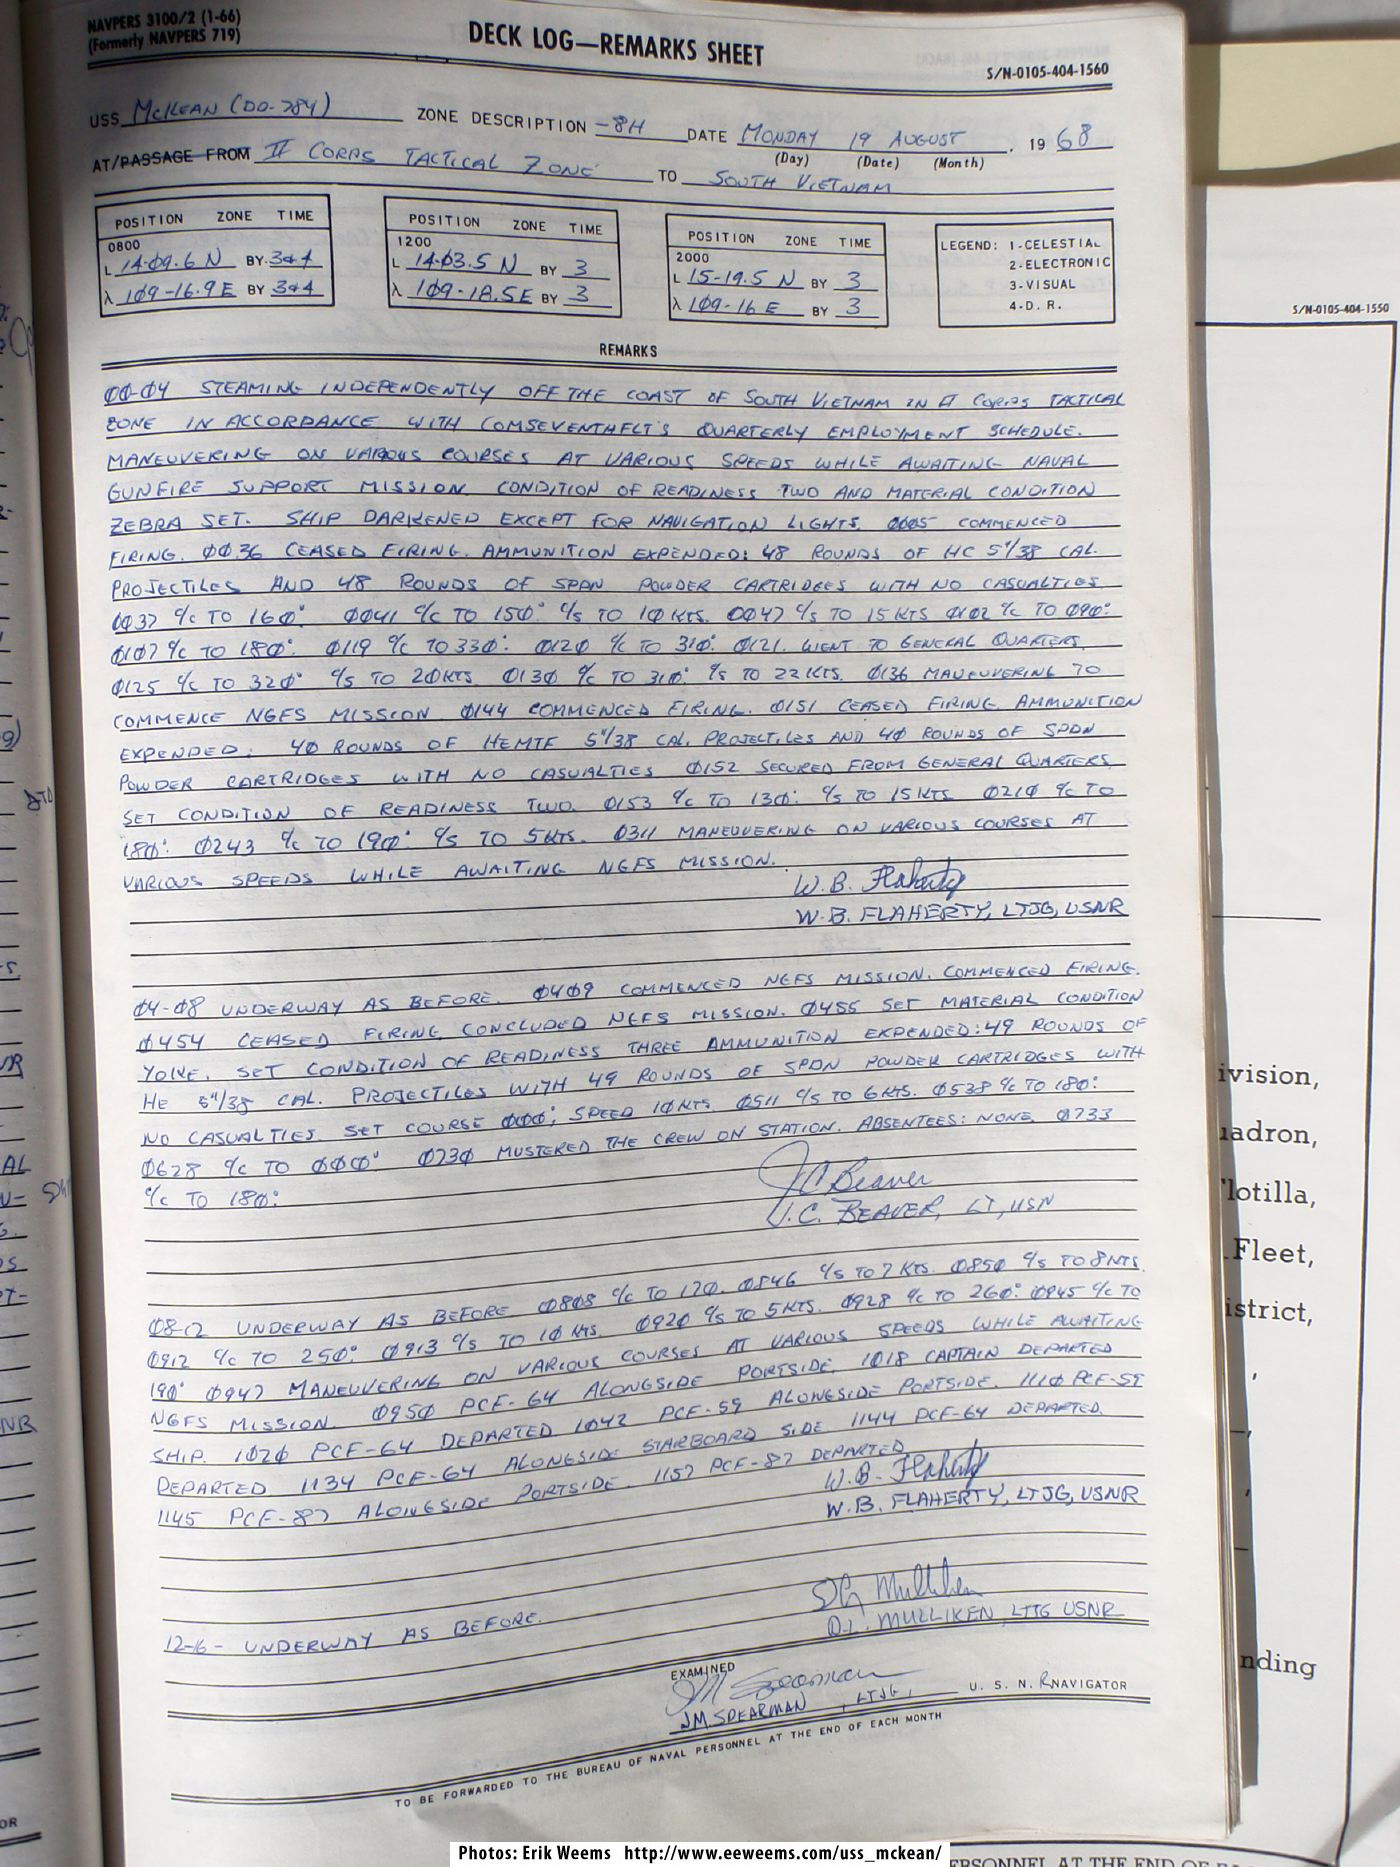 NAVPERS 3100/2 (1-66)
(Formerly NAVPERS 719)
DECK LOG—REMARKS SHEET
S/N-0105-404-1560
USS McKEAN (DD-784) ZONE DESCRIPTION -8H DATE MONDAY 19 AUGUST, 1968
(Day) (Date) (Month)
AT/PASSAGE FROM II CORPS TACTICAL ZONE TO SOUTH VIETNAM
POSITION ZONE TIME
0800
L 14-09.6 N BY 3&4
λ 109-16.9 E BY 3&4
POSITION ZONE TIME
1200
L 14-03.5 N BY 3
λ 109-18.5E BY 3
POSITION ZONE TIME
2000
L 15-19.5 N BY 3
λ 109-16 E BY 3
LEGEND: 1-CELESTIAL
2-ELECTRONIC
3-VISUAL
4-D. R.
REMARKS
00-04 STEAMING INDEPENDENTLY OFF THE COAST OF SOUTH VIETNAM IN II CORPS TACTICAL
ZONE IN ACCORDANCE WITH COMSEVENTHFLT'S QUARTERLY EMPLOYMENT SCHEDULE.
MANEUVERING ON VARIOUS COURSES AT VARIOUS SPEEDS WHILE AWAITING NAVAL
GUNFIRE SUPPORT MISSION. CONDITION OF READINESS TWO AND MATERIAL CONDITION
ZEBRA SET. SHIP DARKENED EXCEPT FOR NAVIGATION LIGHTS. 0005 COMMENCED
FIRING. 0036 CEASED FIRING. AMMUNITION EXPENDED: 48 ROUNDS OF HC 5"/38 CAL.
PROJECTILES AND 48 ROUNDS OF SPDN POWDER CARTRIDGES WITH NO CASUALTIES
0037 c/c TO 160° 0041 c/c TO 150° c/s TO 10 KTS. 0047 c/s TO 15 KTS 0102 c/c TO 090°
0107 c/c TO 180° 0119 c/c TO 330° 0120 c/c TO 310° 0121 WENT TO GENERAL QUARTERS.
0125 c/c TO 320° c/s TO 20KTS 0130 c/c TO 310° c/s TO 22 KTS. 0136 MANEUVERING TO
COMMENCE NGFS MISSION 0144 COMMENCED FIRING. 0151 CEASED FIRING. AMMUNITION
EXPENDED: 40 ROUNDS OF HEMTF 5"/38 CAL. PROJECTILES AND 40 ROUNDS OF SPDN
POWDER CARTRIDGES WITH NO CASUALTIES 0152 SECURED FROM GENERAL QUARTERS
SET CONDITION OF READINESS TWO. 0153 c/c TO 130° c/s TO 15 KTS 0210 c/c TO
180° 0243 c/c TO 190° c/s TO 5KTS. 0311 MANEUVERING ON VARIOUS COURSES AT
VARIOUS SPEEDS WHILE AWAITING NGFS MISSION.
W. B. Flaherty
W.B. FLAHERTY, LTJG, USNR
04-08 UNDERWAY AS BEFORE. 0409 COMMENCED NGFS MISSION. COMMENCED FIRING.
0454 CEASED FIRING, CONCLUDED NGFS MISSION. 0455 SET MATERIAL CONDITION
YOKE. SET CONDITION OF READINESS THREE AMMUNITION EXPENDED: 49 ROUNDS OF
HE 5"/38 CAL. PROJECTILES WITH 49 ROUNDS OF SPDN POWDER CARTRIDGES WITH
NO CASUALTIES. SET COURSE 000°, SPEED 10 KTS. 0511 c/s TO 6 KTS. 0538 c/c TO 180°
0628 c/c TO 000° 0730 MUSTERED THE CREW ON STATION. ABSENTEES: NONE. 0733
c/c TO 180°
J C Beaver
J.C. BEAVER, LT, USN
08-12 UNDERWAY AS BEFORE 0808 c/c TO 120. 0846 c/s TO 7 KTS. 0850 c/s TO 8 KTS.
0912 c/c TO 250° 0913 c/s TO 10 KTS. 0920 c/s TO 5 KTS. 0928 c/c TO 260° 0945 c/c TO
190° 0947 MANEUVERING ON VARIOUS COURSES AT VARIOUS SPEEDS WHILE AWAITING
NGFS MISSION 0950 PCF-64 ALONGSIDE PORTSIDE. 1018 CAPTAIN DEPARTED
SHIP. 1020 PCF-64 DEPARTED 1042 PCF-59 ALONGSIDE PORTSIDE. 1110 PCF-59
DEPARTED 1134 PCF-64 ALONGSIDE STARBOARD SIDE 1144 PCF-64 DEPARTED.
1145 PCF-87 ALONGSIDE PORTSIDE. 1157 PCF-87 DEPARTED
W. B. Flaherty
W.B. FLAHERTY, LTJG, USNR
12-16 - UNDERWAY AS BEFORE.
D L Mulliken
D.L. MULLIKEN, LTJG USNR
EXAMINED
JM Spearman
J.M. SPEARMAN, LTJG, U. S. N. R NAVIGATOR
TO BE FORWARDED TO THE BUREAU OF NAVAL PERSONNEL AT THE END OF EACH MONTH
S/N-0105-404-1550
ivision,
uadron,
lotilla,
Fleet,
istrict,
nding
PERSONNEL AT THE END OF
Photos: Erik Weems http://www.eeweems.com/uss_mckean/